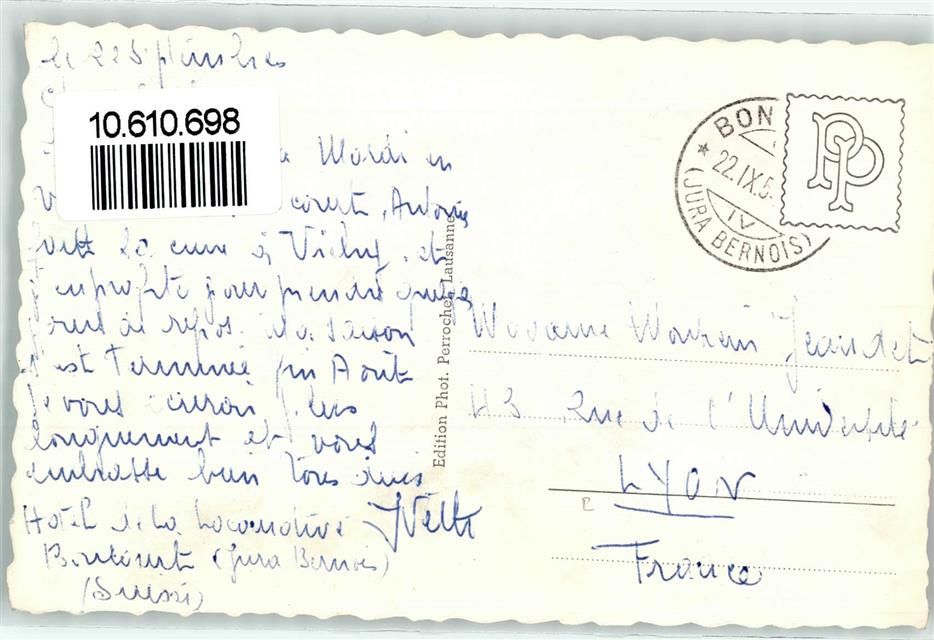 le 22 Septembre
10.610.698
Mardi en
court, Antoine
fait sa cure à Vichy, et
j'en profite pour prendre quelques
jours de repos. La saison
s'est terminée fin Août
Je vous écrirai plus
longuement et vous
embrasse bien tous deux
Yvette
Hotel de la Locomotive
Boncourt (Jura Bernois)
(Suisse)
Edition Phot. Perrochet, Lausanne
BON
22.IX.5
IV
(JURA BERNOIS)
PP
Madame Jeandet
43 Rue de l'Université
LYON
France